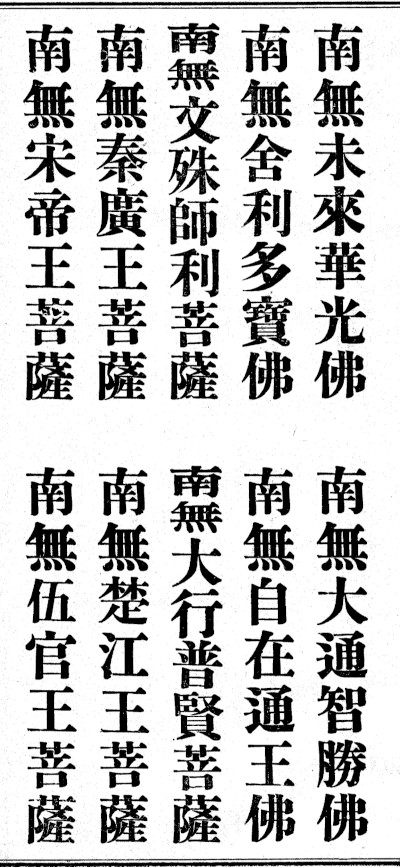 南無未來華光佛
南無大通智勝佛
南無舍利多寶佛
南無自在通王佛
南無文殊師利菩薩
南無大行普賢菩薩
南無秦廣王菩薩
南無楚江王菩薩
南無宋帝王菩薩
南無伍官王菩薩